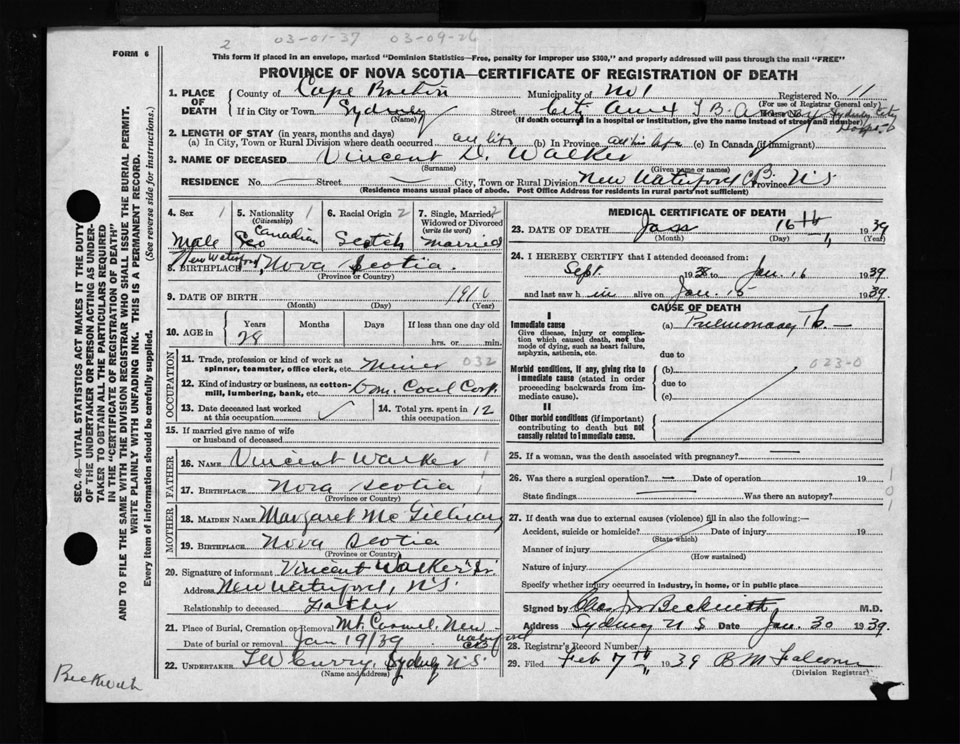 2 03-01-37 03-09-26
FORM 6
This form if placed in an envelope, marked "Dominion Statistics—Free, penalty for improper use $300," and properly addressed will pass through the mail "FREE"
PROVINCE OF NOVA SCOTIA—CERTIFICATE OF REGISTRATION OF DEATH
1. PLACE OF DEATH County of Cape Breton Municipality of No 1 Registered No. 11
(For use of Registrar General only)
If in City or Town Sydney Street City Annex T B Sydney City
(Name) (If death occurred in a hospital or institution, give the name instead of street and number)
2. LENGTH OF STAY (in years, months and days)
(a) In City, Town or Rural Division where death occurred all life (b) In Province all his life (c) In Canada (if immigrant)
3. NAME OF DECEASED Vincent D. Walker
(Surname) (Given name or names)
RESIDENCE No. — Street — City, Town or Rural Division New Waterford CB Province N.S
(Residence means usual place of abode. Post Office Address for residents in rural parts not sufficient)
4. Sex 1 5. Nationality 1 (Citizenship) 6. Racial Origin 2 7. Single, Married, 2 Widowed or Divorced (write the word)
Male Canadian Scotch Married
New Waterford,
8. BIRTHPLACE Nova Scotia.
(Province or Country)
9. DATE OF BIRTH 1910
(Month) (Day) (Year)
10. AGE in Years Months Days If less than one day old
28 hrs. or min.
OCCUPATION
11. Trade, profession or kind of work as spinner, teamster, office clerk, etc. Miner 032
12. Kind of industry or business, as cotton-mill, lumbering, bank, etc. Dom. Coal Corp.
13. Date deceased last worked at this occupation 14. Total yrs. spent in this occupation 12
15. If married give name of wife or husband of deceased
FATHER
16. NAME Vincent Walker 1
17. BIRTHPLACE Nova Scotia 1
(Province or Country)
MOTHER
18. MAIDEN NAME Margaret McGillivary
19. BIRTHPLACE Nova Scotia
(Province or Country)
20. Signature of informant Vincent Walker Sr.
Address New Waterford, N.S.
Relationship to deceased Father
21. Place of Burial, Cremation or Removal Mt Carmel, New Waterford CB
Date of burial or removal Jan 19/39
22. UNDERTAKER Curry, Sydney N.S.
(Name and address)
MEDICAL CERTIFICATE OF DEATH
23. DATE OF DEATH 16th, 1939
(Month) (Day) (Year)
24. I HEREBY CERTIFY that I attended deceased from:
Sept. 1938 to Jan. 16 1939
and last saw him alive on Jan. 15 1939.
CAUSE OF DEATH
I
Immediate cause (a) Pulmonary Tb. —
Give disease, injury or complication which caused death, not the mode of dying, such as heart failure, asphyxia, asthenia, etc.
due to
023-0
Morbid conditions, if any, giving rise to immediate cause (stated in order proceeding backwards from immediate cause). (b)
due to
(c)
II
Other morbid conditions (if important) contributing to death but not causally related to immediate cause.
25. If a woman, was the death associated with pregnancy? —
26. Was there a surgical operation? — Date of operation 19
State findings — Was there an autopsy?
1
0
1
27. If death was due to external causes (violence) fill in also the following:—
Accident, suicide or homicide? Date of injury 19
(State which)
Manner of injury
(How sustained)
Nature of injury
Specify whether injury occurred in industry, in home, or in public place
Signed by Chas. Beckwith M.D.
Address Sydney N S Date Jan. 30 1939.
28. Registrar's Record Number
29. Filed Feb 7th 1939 B M Falconer
(Division Registrar)
Beckwith
SEC. 46—VITAL STATISTICS ACT MAKES IT THE DUTY
OF THE UNDERTAKER OR PERSON ACTING AS UNDER-
TAKER TO OBTAIN ALL THE PARTICULARS REQUIRED
IN THE "CERTIFICATE OF REGISTRATION OF DEATH"
AND TO FILE THE SAME WITH THE DIVISION REGISTRAR WHO SHALL ISSUE THE BURIAL PERMIT.
WRITE PLAINLY WITH UNFADING INK. THIS IS A PERMANENT RECORD.
Every item of information should be carefully supplied. (See reverse side for instructions.)